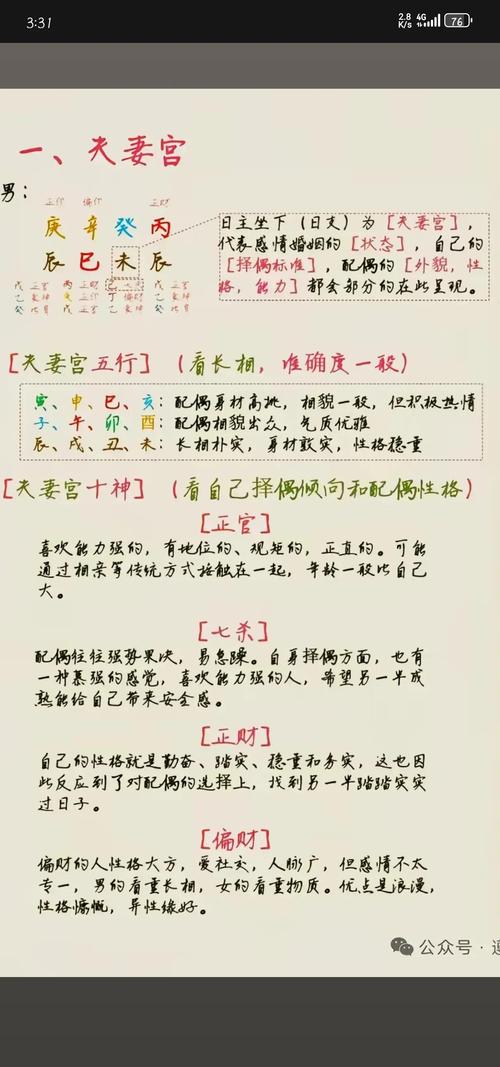 3:31
2.8 K/s 4G 76
一、夫妻宫
男:
正印 偏印 正财
庚 辛 癸 丙
辰 巳 未 辰
戊 正官 丙 正财 己 七杀 戊 正官
乙 食神 庚 正印 丁 偏财 乙 食神
癸 比肩 戊 正官 乙 食神 癸 比肩
日主坐下（日支）为［夫妻宫］,
代表感情婚姻的［状态］, 自己的
［择偶标准］, 配偶的［外貌, 性
格, 能力］都会部分的在此呈现。
［夫妻宫五行］（看长相, 准确度一般）
寅、申、巳、亥: 配偶身材高挑, 相貌一般, 但积极热情
子、午、卯、酉: 配偶相貌出众, 气质优雅
辰、戌、丑、未: 长相朴实, 身材敦实, 性格稳重
［夫妻宫十神］（看自己择偶倾向和配偶性格）
［正官］
喜欢能力强的, 有地位的、规矩的, 正直的。可能
通过相亲等传统方式接触在一起, 年龄一般比自己
大。
［七杀］
配偶往往强势果决, 易急躁。自身择偶方面, 也有
一种慕强的感觉, 喜欢能力强的人, 希望另一半成
熟能给自己带来安全感。
［正财］
自己的性格就是勤奋、踏实、稳重和务实, 这也因
此反应到了对配偶的选择上, 找到另一半踏踏实实
过日子。
［偏财］
偏财的人性格大方, 爱社交, 人脉广, 但感情不太
专一, 男的看重长相, 女的看重物质。优点是浪漫,
性格慷慨, 异性缘好。
公众号·